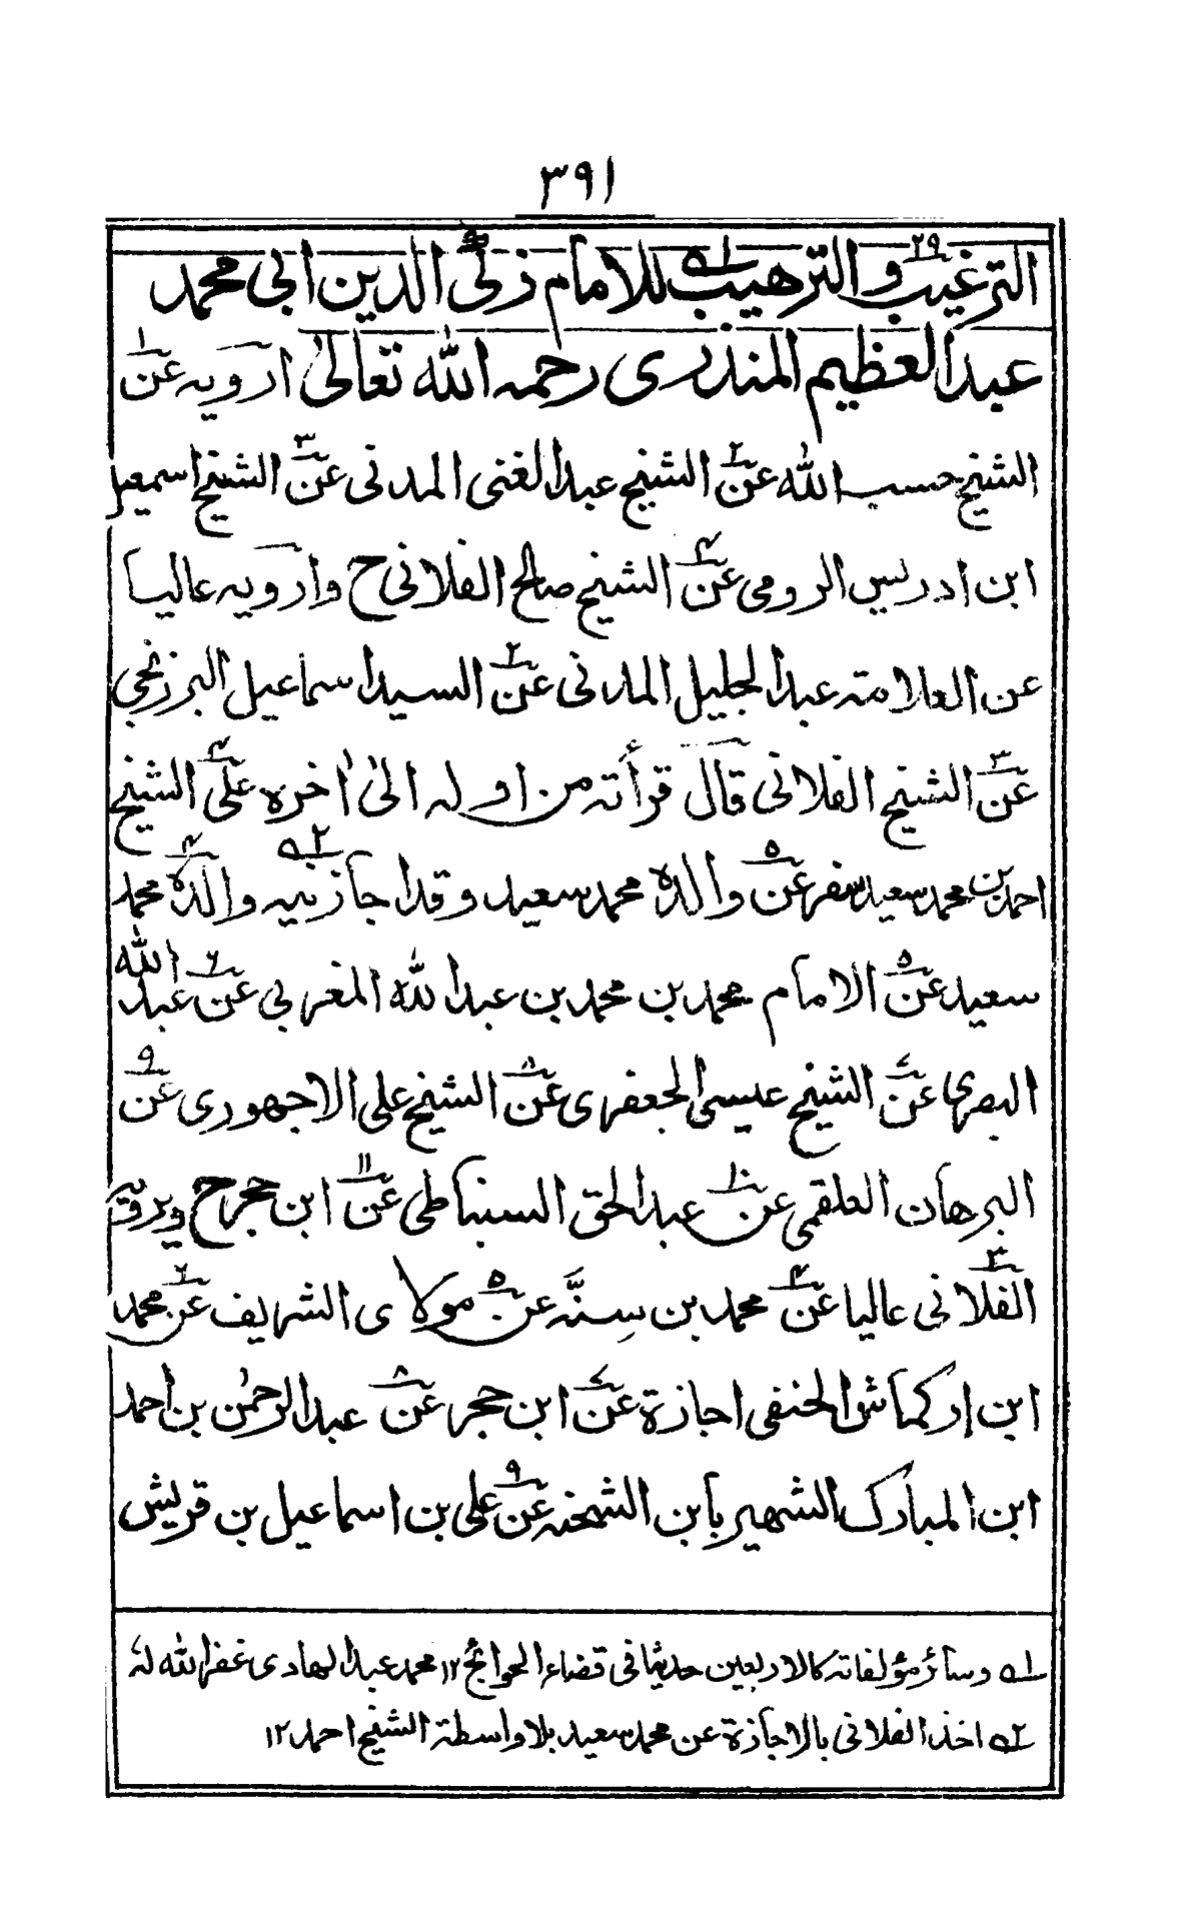 ٣٩١
الترغيب والترهيب للامام زكي الدين ابي محمد
عبد العظيم المنذري رحمه الله تعالىٰ ارويه عن
الشيخ حسب الله عن الشيخ عبد الغني المدني عن الشيخ اسمعيل
ابن ادريس الرومي عن الشيخ صالح الفلاني ح وارويه عاليا
عن العلامة عبد الجليل المدني عن السيد اسماعيل البرزنجي
عن الشيخ الفلاني قال قرأته من اوله الىٰ اٰخره على الشيخ
احمد بن محمد سعيد سفر عن والده محمد سعيد وقد اجازنيه والده محمد
سعيد عن الامام محمد بن محمد بن عبد الله المغربي عن عبد الله
البصري عن الشيخ عيسى الجعفري عن الشيخ علي الاجهوري عن
البرهان العلقمي عن عبد الحق السنباطي عن ابن حجر ح ويرويه
الفلاني عاليا عن محمد بن سِنَّه عن مولاي الشريف عن محمد
ابن اركماش الحنفي اجازة عن ابن حجر عن عبد الرحمٰن بن احمد
ابن المبارك الشهير بابن الشحنه عن علي بن اسماعيل بن قريش
١ه‍ وسائر مؤلفاته كالاربعين حديثا في قضاء الحوائج ١٢ محمد عبد الهادي غفر الله له
٢ه‍ اخذ الفلاني بالاجازة عن محمد سعيد بلا واسطة الشيخ احمد ١٢